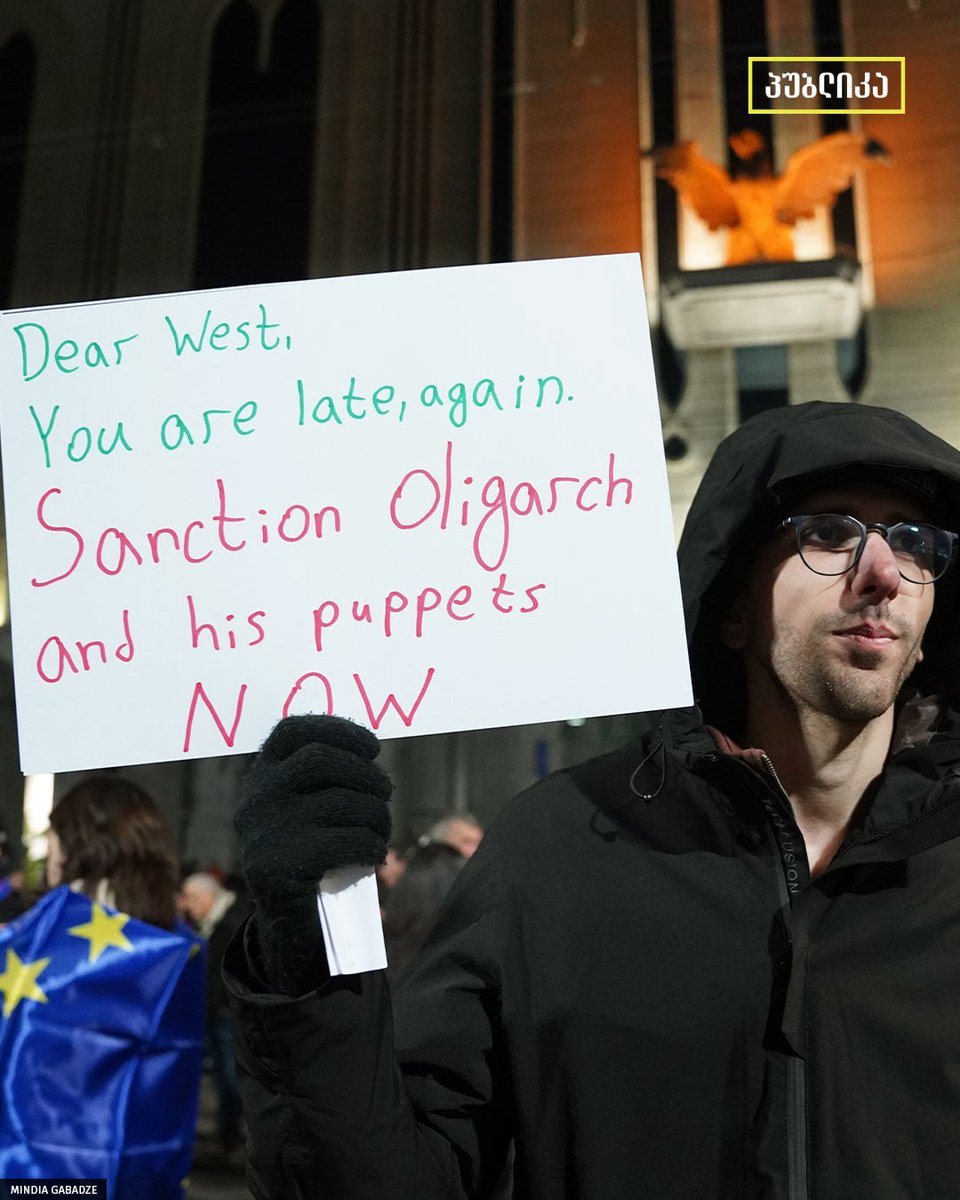 პუბლიკა
Dear West,
You are late, again.
Sanction Oligarch
and his puppets
NOW
MINDIA GABADZE